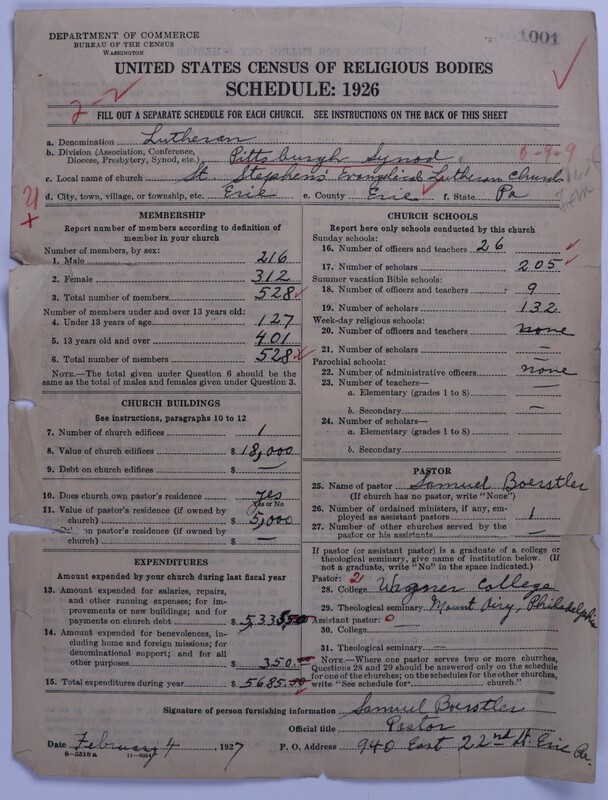 DEPARTMENT OF COMMERCE
BUREAU OF THE CENSUS
WASHINGTON
1001
UNITED STATES CENSUS OF RELIGIOUS BODIES
SCHEDULE: 1926
2-2
FILL OUT A SEPARATE SCHEDULE FOR EACH CHURCH. SEE INSTRUCTIONS ON THE BACK OF THIS SHEET
a. Denomination Lutheran
b. Division (Association, Conference, Diocese, Presbytery, Synod, etc.) Pittsburgh Synod
c. Local name of church St. Stephens' Evangelical Lutheran Church
d. City, town, village, or township, etc. Erie e. County Erie f. State Pa
MEMBERSHIP
Report number of members according to definition of
member in your church
Number of members, by sex:
1. Male 216
2. Female 312
3. Total number of members 528
Number of members under and over 13 years old:
4. Under 13 years of age 127
5. 13 years old and over 401
6. Total number of members 528
NOTE.—The total given under Question 6 should be
same as the total of males and females given under Question 3.
CHURCH BUILDINGS
See instructions, paragraphs 10 to 12
7. Number of church edifices 1
8. Value of church edifices $ 18,000
9. Debt on church edifices $ —
10. Does church own pastor's residence yes
Yes or No
11. Value of pastor's residence (if owned by
church) $ 5,000
on pastor's residence (if owned by
church) $ —
EXPENDITURES
Amount expended by your church during last fiscal year
13. Amount expended for salaries, repairs,
and other running expenses; for im-
provements or new buildings; and for
payments on church debt $
14. Amount expended for benevolences, in-
cluding home and foreign missions; for
denominational support; and for all
other purposes $ 350.
15. Total expenditures during year $ 5685.
CHURCH SCHOOLS
Report here only schools conducted by this church
Sunday schools:
16. Number of officers and teachers 26
17. Number of scholars 205
Summer vacation Bible schools:
18. Number of officers and teachers 9
19. Number of scholars 132
Week-day religious schools:
20. Number of officers and teachers none
21. Number of scholars —
Parochial schools:
22. Number of administrative officers none
23. Number of teachers—
a. Elementary (grades 1 to 8) —
b. Secondary —
24. Number of scholars—
a. Elementary (grades 1 to 8)
b. Secondary
PASTOR
25. Name of pastor Samuel Boerstler
(If church has no pastor, write "None")
26. Number of ordained ministers, if any, em-
ployed as assistant pastors 1
27. Number of other churches served by the
pastor or his assistants —
If pastor (or assistant pastor) is a graduate of a college or
theological seminary, give name of institution below. (If
not a graduate, write "No" in the space indicated.)
Pastor: 2
28. College Wagner College
29. Theological seminary Mount Airy, Philadelphia
Assistant pastor: 0
30. College —
31. Theological seminary —
NOTE.—Where one pastor serves two or more churches,
Questions 28 and 29 should be answered only on the schedule
for one of the churches; on the schedules for the other churches,
write "See schedule for church."
Signature of person furnishing information Samuel Boerstler
Official title Pastor
Date February 4, 1927 P. O. Address 940 East 22nd St. Erie Pa.
8-5518a